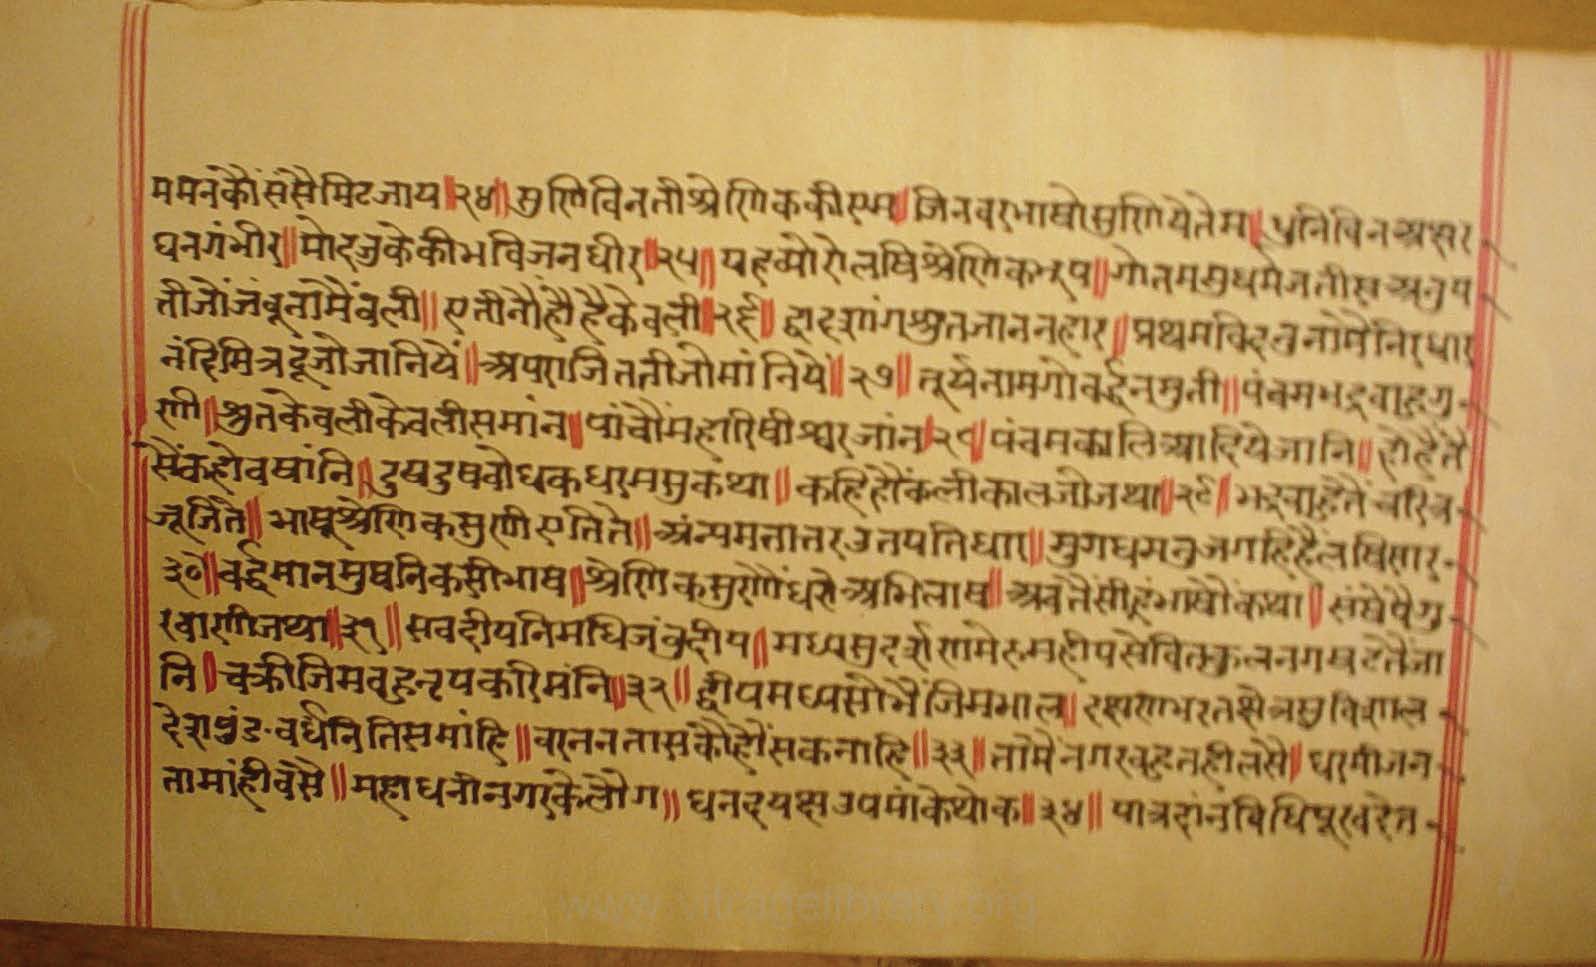 ममनकौसंसैमिटजाय॥२४॥सुणिविनतीश्रेणिककीएम॥जिनवरभाषोसुणियेतेम॥धुनिविनअक्षर
घनगंभीर॥मोदजुकेकीभविजनधीर॥२५॥यहव्योरोलषिश्रेणिकभूप॥गोतमसुधर्मजतीसअनुप
तीजोंजंबूनामैंवली॥एतीनौंहौहैकेवली॥२६॥द्वादशांगश्रुतजाननहार॥प्रथमविश्नुनामेनिरधार
नंदिमित्रदूजोजानियें॥अपराजिततीजोमांनियें॥२७॥तूर्यनामगोवर्द्धनमुनी॥पंचमभद्रबाहुगु
णी॥श्रुतकेवलीकेवलीसमांन॥पांचौंमहारिषीश्वरजांन॥२८॥पंचमकालित्र्यादियेजानि॥होहैतै
सेंकहोवषांनि॥दुषदुषबोधकधरमसुकंथा॥कहिहौंकलीकालजोजथा॥२९॥भद्रबाहुतैंचरित्र
जूर्जिते॥भाषूश्रेणिकसुणीएतिते॥अंन्यमतातरउतपतिधार॥मुगधमनुजगहिहैलषिसार
३०॥वर्द्धमानमुषनिकसीभाष॥श्रेणिकसुणैंधरीअभिलाष॥अबतैंसीहूंभाषोंकथा॥संषेपैगु
रवाणीजथा॥३१॥सवदीपनिमधिजंबुदीप॥मध्यसुदर्शणमेरुमहीपसेवितकुलनगषटतैजा
नि॥चक्रीजिमबहुनृपकरिमंनि॥३२॥द्वीपमध्यसोभैंजिमभाल॥दक्षणभरतक्षेत्रसुविशाल
देशषंड॰वर्धनितिसमांहि॥वरननतासकौहौंसकनाहि॥३३॥तामेंनगरबहुतहीलसे॥धरमीजन
तामांहीवसै॥महाधनीनगरकेलोग॥धनदयक्षउपमांकेथोक॥३४॥पात्रदांनविधिपूरवदेत